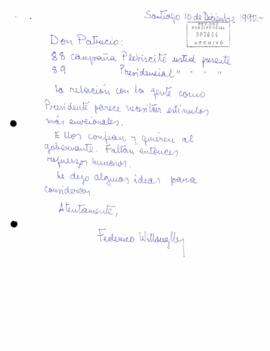 Santiago 10 de Diciembre 1992.-
ARCHIVO
Don Patricio:
88 campaña Plebiscito usted presente
89 Presidencial " " " "
La relación con la gente como
Presidente parece necesitar estímulos
más emocionales.
Ellos confían y quieren al
gobernante. Faltan entonces
refuerzos humanos.
Le dejo algunas ideas para
considerar.
Atentamente,
Federico Willoughby